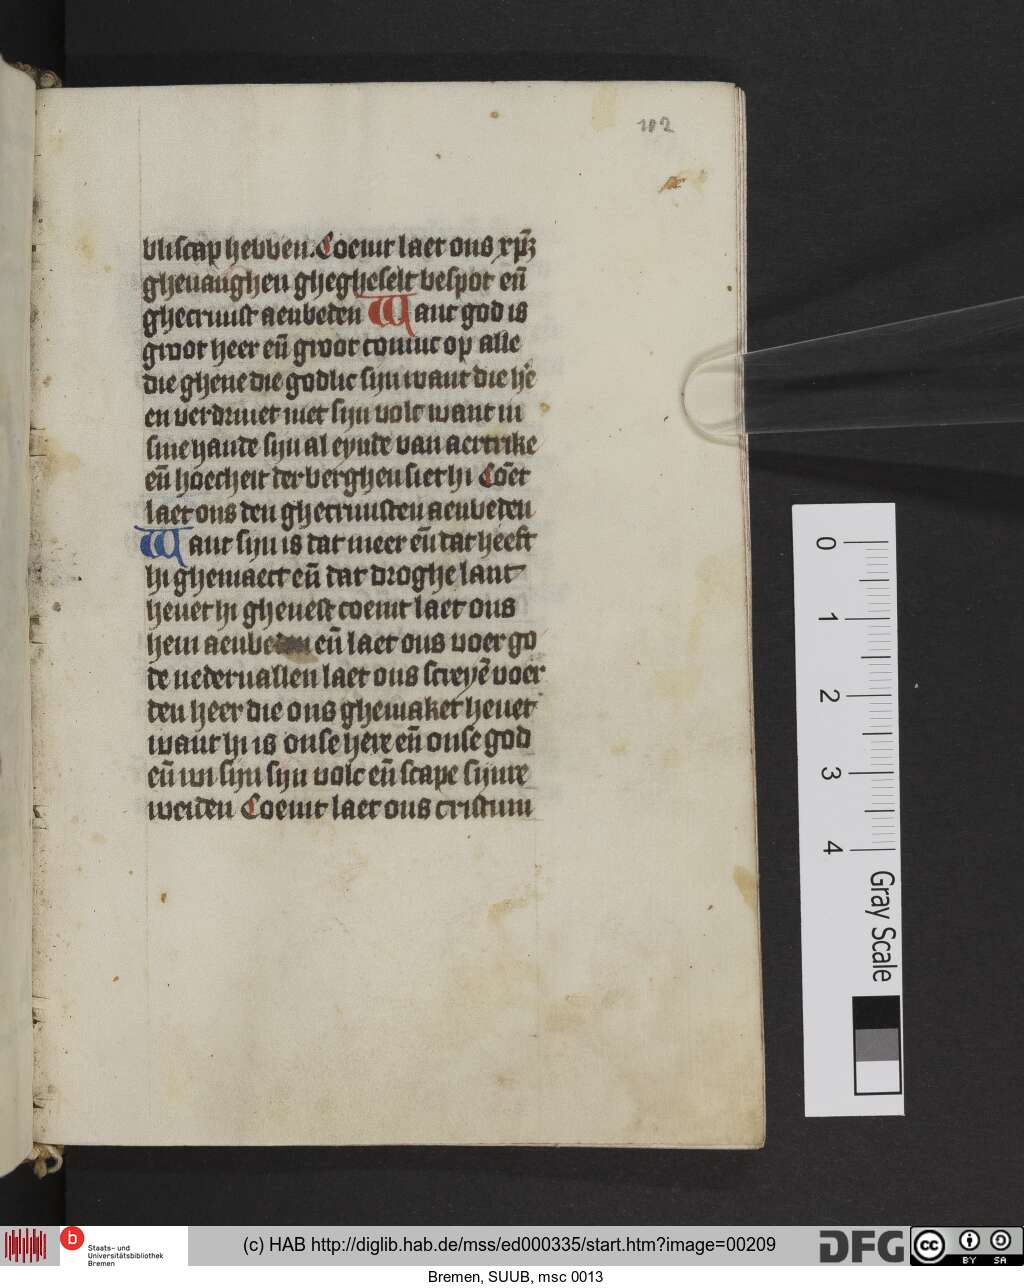 102
bliscap hebben. Coemt laet ons xpm̄
gheuanghen ghegheselt bespot en̄
ghecruust aenbeden Want god is
groot heer en̄ groot coninc op alle
die ghene die godlic sijn want die he
en verdriuet niet sijn volc want in
sine hande sijn al eynde van aertrike
en̄ hoecheit der berghen siet hi Coēt
laet ons den ghecruusten aenbeden
Want sijn is dat meer en̄ dat heeft
hi ghemaect en̄ dat droghe lant
heuet hi gheuest coemt laet ons
hem aenbeden en̄ laet ons voer go
de nederuallen laet ons screyē voer
den heer die ons ghemaket heuet
want hi is onse here en̄ onse god
en̄ wi sijn sijn volc en̄ scape sijnre
weiden Coemt laet ons cristum
0
1
2
3
4
Gray Scale
b
Staats- und
Universitätsbibliothek
Bremen
(c) HAB http://diglib.hab.de/mss/ed000335/start.htm?image=00209
DFG
cc
BY SA
Bremen, SUUB, msc 0013